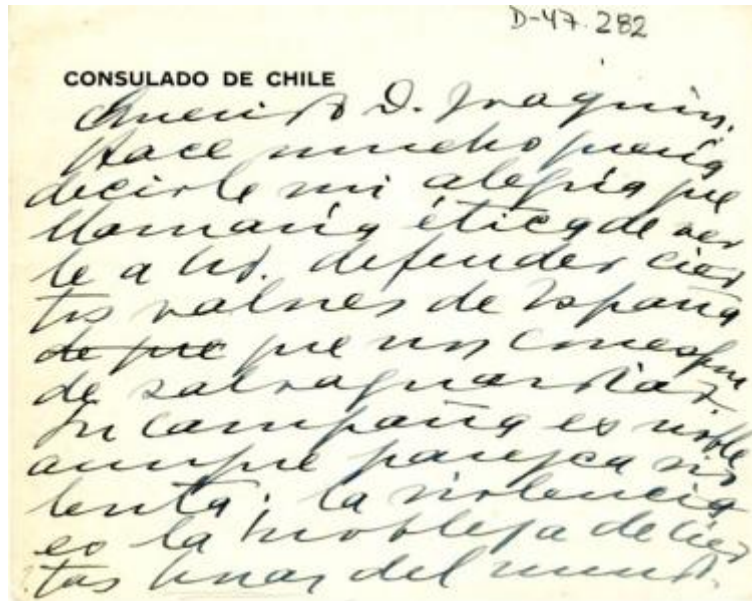 D-47.282
CONSULADO DE CHILE
Querido D. Joaquín:
Hace mucho quería
decirle mi alegría que
llamaría ética de ver
le a Ud. defender cier
tos valores de España
de que que nos corresponde
de salvaguardiar
Su campaña es noble
aunque parezca vio
lenta; la violencia
es la nobleza de cier
tas horas del mundo.